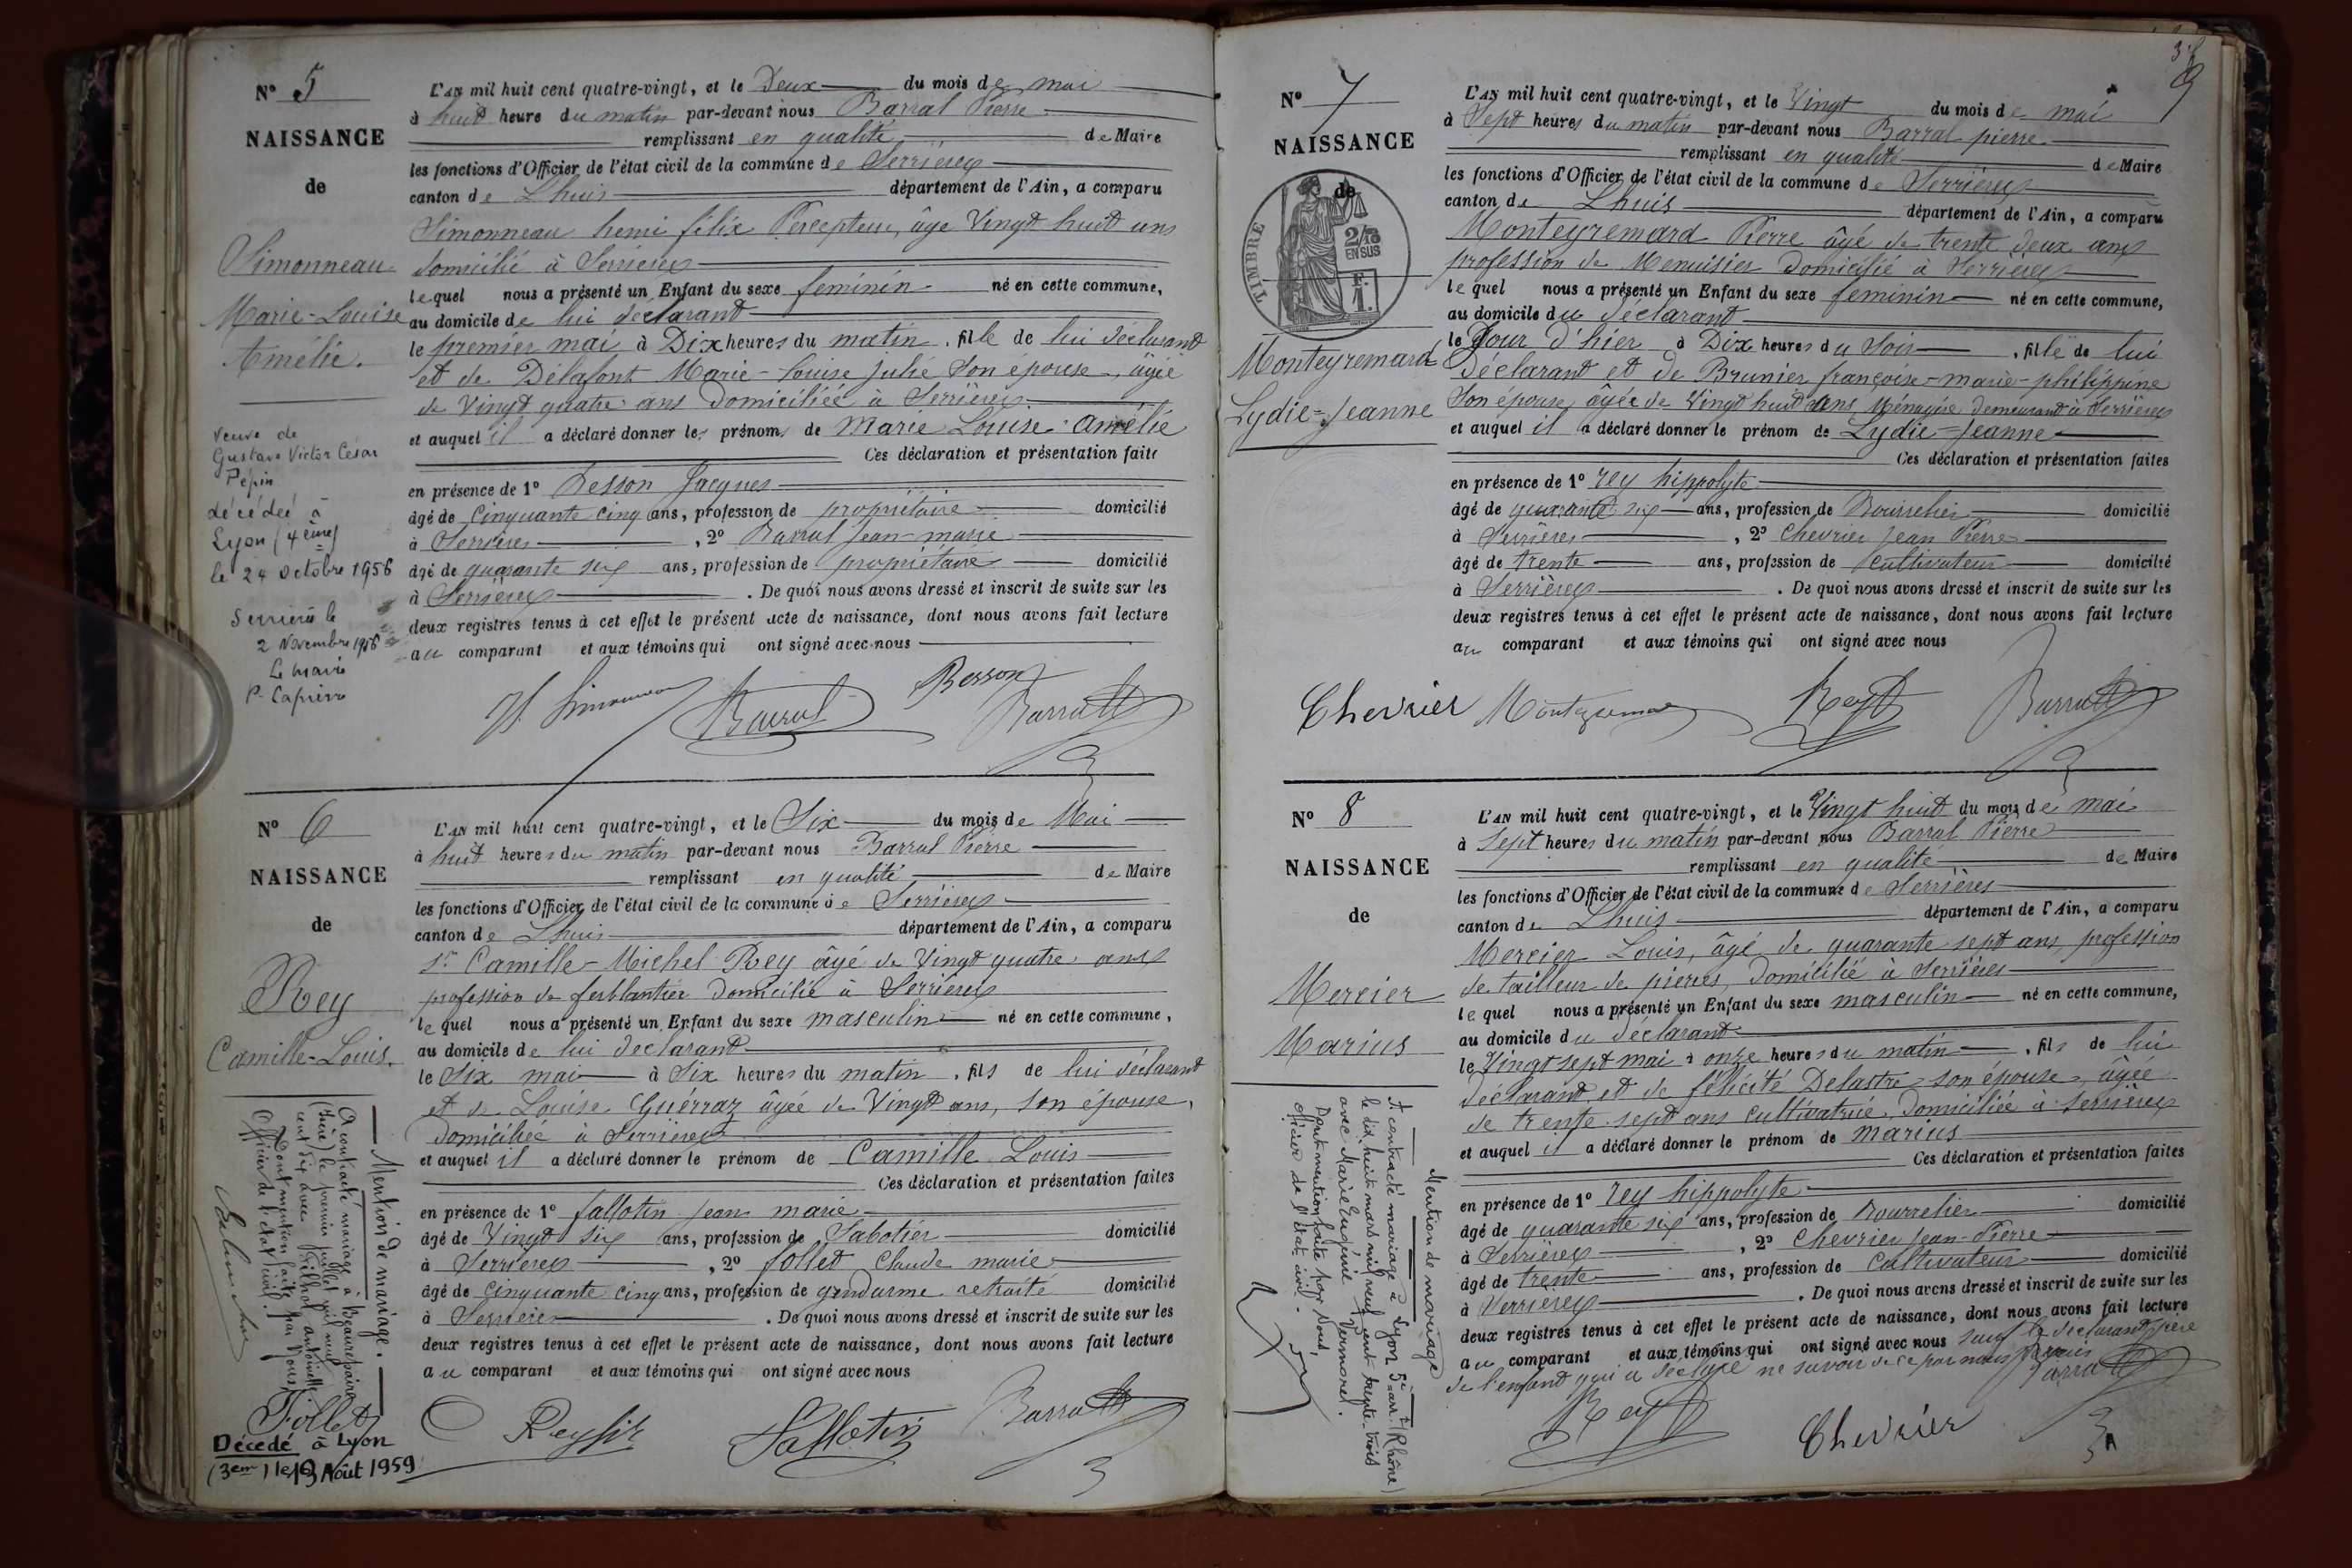 N° 5
NAISSANCE
de
Simonneau
Marie-Louise
Amélie.
Veuve de
Gustave Victor César
Pépin
décédée à
Lyon (4ème)
le 24 octobre 1956
Serrières le
2 Novembre 1956
Le Maire
L'AN mil huit cent quatre-vingt, et le Deux du mois de mai
à huit heure du matin par-devant nous Barral Pierre
remplissant en qualité de Maire
les fonctions d'Officier de l'état civil de la commune de Serrières
canton de Lhuis département de l'Ain, a comparu
Simonneau henri félix Percepteur, âge Vingt huit ans
domicilié à Serrières
lequel nous a présenté un Enfant du sexe feminin né en cette commune,
au domicile de lui déclarant
le premier mai à Dix heures du matin, fille de lui déclarant
et de Délafont Marie-Louise Julie Son épouse, âgée
de Vingt quatre ans Domiciliée à Serrières
et auquel il a déclaré donner les prénoms de Marie Louise Amélie
Ces déclaration et présentation faite
en présence de 1° Besson Jacques
âgé de Cinquante cinq ans, profession de propriétaire domicilié
à Serrières, 2° Barral Jean-marie
âgé de quarante six ans, profession de propriétaire domicilié
à Serrières. De quoi nous avons dressé et inscrit de suite sur les
deux registres tenus à cet effet le présent acte de naissance, dont nous avons fait lecture
au comparant et aux témoins qui ont signé avec nous
H. Simonneau Barral Besson Barral
N° 6
NAISSANCE
de
Rey
Camille-Louis.
Mention de mariage.
A contracté mariage à Beaurepaire
(Isère) le premier juillet mil neuf
cent dix avec Vilhot antoinette
Dont mention faite par Nous
Officier de l'état civil.
Décédé à Lyon
(3em) le 19 Août 1959
L'AN mil huit cent quatre-vingt, et le Six du mois de Mai
à huit heures du matin par-devant nous Barral Pierre
remplissant en qualité de Maire
les fonctions d'Officier de l'état civil de la commune de Serrières
canton de Lhuis département de l'Ain, a comparu
Sr Camille-Michel Rey âgé de Vingt quatre ans
profession de ferblantier Domicilié à Serrières
lequel nous a présenté un Enfant du sexe masculin né en cette commune,
au domicile de lui déclarant
le Six mai à Six heures du matin, fils de lui déclarant
et de Louise Guérraz âgée de Vingt ans, son épouse,
domiciliée à Serrières
et auquel il a déclaré donner le prénom de Camille Louis
Ces déclaration et présentation faites
en présence de 1° fallotin Jean marie
âgé de Vingt six ans, profession de Sabotier domicilié
à Serrières, 2° follet Claude marie
âgé de Cinquante cinq ans, profession de gendarme retraité domicilié
à Serrières. De quoi nous avons dressé et inscrit de suite sur les
deux registres tenus à cet effet le présent acte de naissance, dont nous avons fait lecture
au comparant et aux témoins qui ont signé avec nous
Follet C Rey fallotin Barral
9
N° 7
NAISSANCE
de
TIMBRE
2/10
EN SUS
F.
1.
Monteyremard
Lydie=Jeanne
L'AN mil huit cent quatre-vingt, et le Vingt du mois de mai
à Sept heures du matin par-devant nous Barral pierre
remplissant en qualité de Maire
les fonctions d'Officier de l'état civil de la commune de Serrières
canton de Lhuis département de l'Ain, a comparu
Monteyremard Pierre âgé de trente deux ans
profession de Menuisier Domicilié à Serrières
lequel nous a présenté un Enfant du sexe feminin né en cette commune,
au domicile du déclarant
le Jour d'hier à Dix heures du Soir, fille de lui
déclarant et de Brunier françoise-marie-philippine
Son épouse, âgée de Vingt huit ans Ménagère demeurant à Serrières
et auquel il a déclaré donner le prénom de Lydie=Jeanne
Ces déclaration et présentation faites
en présence de 1° rey hippolyte
âgé de quarante six ans, profession de Bourrelier domicilié
à Serrières, 2° Chevrier Jean Pierre
âgé de trente ans, profession de cultivateur domicilié
à Serrières. De quoi nous avons dressé et inscrit de suite sur les
deux registres tenus à cet effet le présent acte de naissance, dont nous avons fait lecture
au comparant et aux témoins qui ont signé avec nous
Chevrier Monteyremard Rey Barral
N° 8
NAISSANCE
de
Mercier
Marius
Mention de mariage
A contracté mariage à Lyon 5e arr. (Rhône)
le dix huit mars mil neuf cent trente trois
avec Marie Eugénie Vermorel.
Dont mention faite par Nous,
officier de l'Etat civil.
L'AN mil huit cent quatre-vingt, et le Vingt huit du mois de mai
à Sept heures du matin par-devant nous Barral Pierre
remplissant en qualité de Maire
les fonctions d'Officier de l'état civil de la commune de Serrières
canton de Lhuis département de l'Ain, a comparu
Mercier Louis, âgé de quarante sept ans, profession
de tailleur de pieres, Domicilié à Serrières
lequel nous a présenté un Enfant du sexe masculin né en cette commune,
au domicile du déclarant
le Vingt sept mai à onze heures du matin, fils de lui
déclarant et de félicité Delastre son épouse, âgée
de trente sept ans cultivatrice, Domiciliée à Serrières
et auquel il a déclaré donner le prénom de Marius
Ces déclaration et présentation faites
en présence de 1° rey hippolyte
âgé de quarante six ans, profession de Bourrelier domicilié
à Serrières, 2° Chevrier Jean-Pierre
âgé de trente ans, profession de Cultivateur domicilié
à Serrières. De quoi nous avons dressé et inscrit de suite sur les
deux registres tenus à cet effet le présent acte de naissance, dont nous avons fait lecture
au comparant et aux témoins qui ont signé avec nous sauf le déclarant père
de l'enfant qui a déclaré ne savoir de ce par nous requis
Rey Chevrier Barral